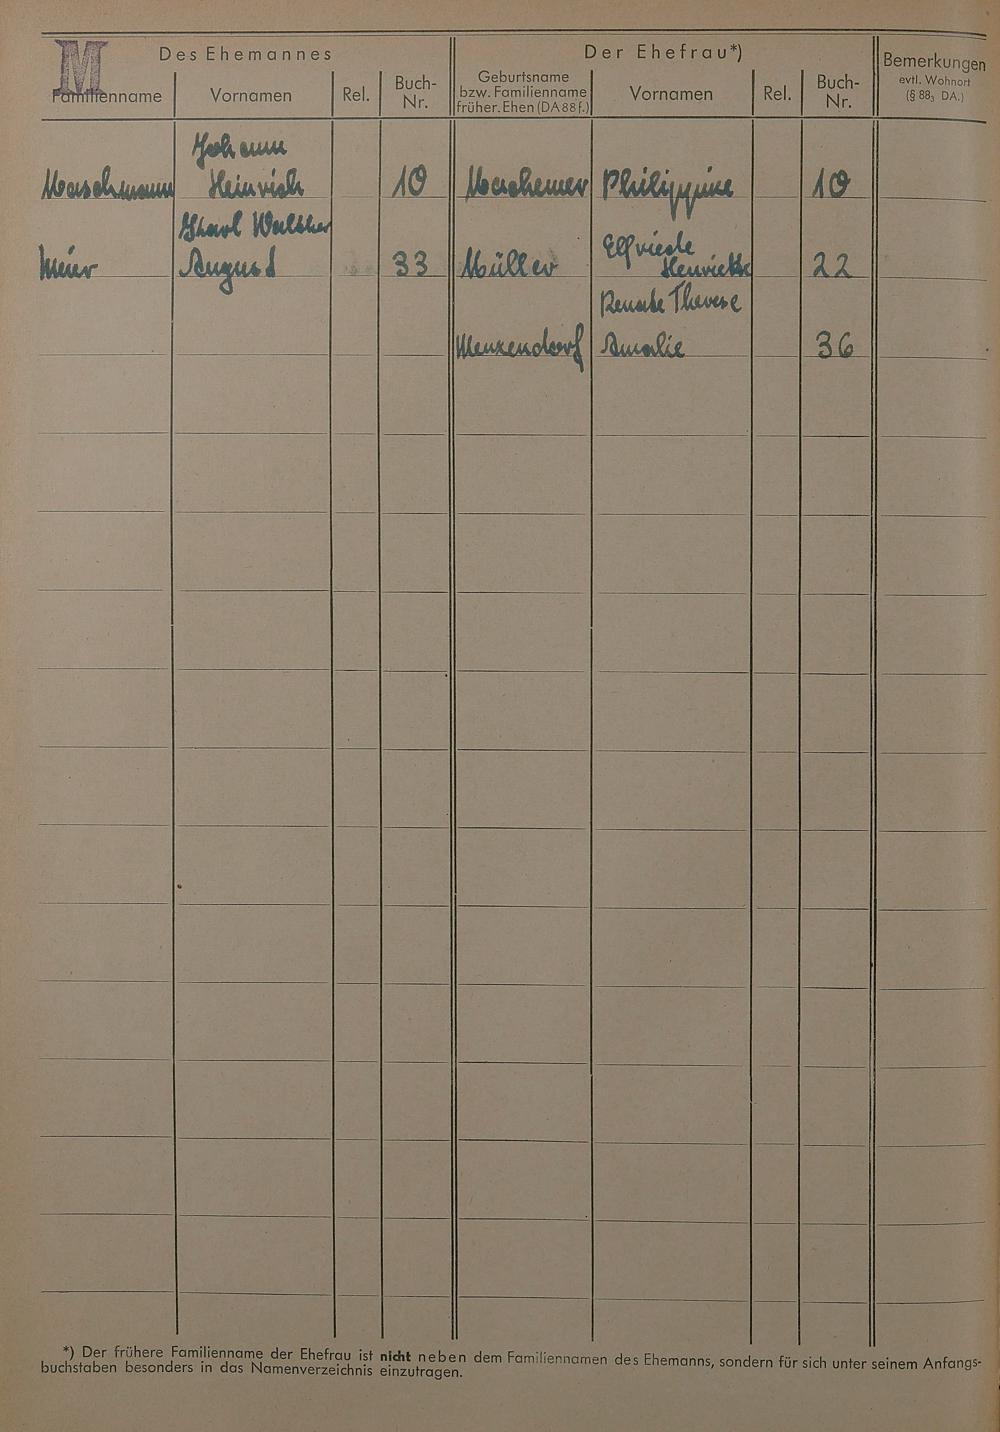 M
Des Ehemannes
Der Ehefrau*)
Bemerkungen
evtl. Wohnort
(§ 88, DA.)
Familienname
Vornamen
Rel.
Buch-
Nr.
Geburtsname
bzw. Familienname
früher. Ehen (DA 88 f.)
Vornamen
Rel.
Buch-
Nr.
Johann
Maschmann Heinrich 10 Machemer Philippine 10
Walther Elfriede
Meier August 33 Müller Henriette 22
Renate Therese
Menzendorf Amalie 36
*) Der frühere Familienname der Ehefrau ist nicht neben dem Familiennamen des Ehemanns, sondern für sich unter seinem Anfangs-
buchstaben besonders in das Namenverzeichnis einzutragen.